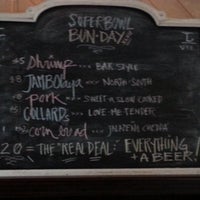 SUPERBOWL
BUN-DAY
$5 Shrimp → BAR STYLE
$8 JAMBOlaya → NORTH-SOUTH
$8 pork → SWEET & SLOW COOKED
$5 COLLARDS → LOVE-ME-TENDER
$2 corn bread → JALAPENO CHEDDA
20 = THE "REAL DEAL": EVERYTHING
+ A BEER!